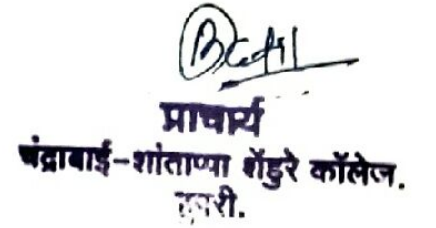 प्राचार्य
चंद्राबाई-शांताप्पा शेंडुरे कॉलेज.